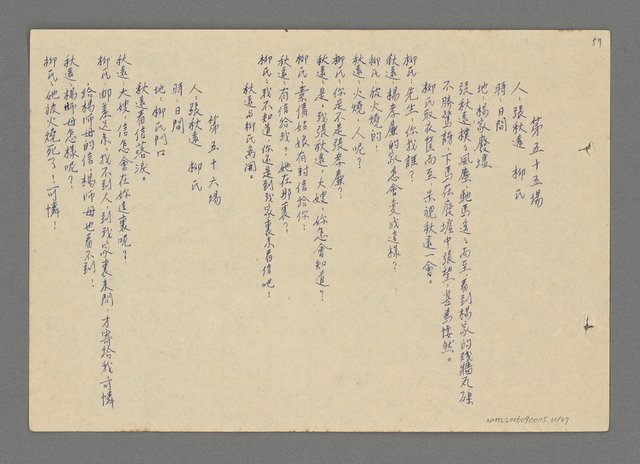 57
第五十五場
人：張秋遠　柳氏
時：日間
地：楊家廢墟
張秋遠樸樸風塵，馳馬遠遠而至，看到楊家的殘牆瓦礫
不勝驚詫，下馬在廢墟中張望，甚為悽然。
柳氏取衣筐而至，呆視秋遠一會。
柳氏：先生，你找誰？
秋遠：楊孝廉的家怎會變成這樣？
柳氏：被火燒的！
秋遠：火燒，人呢？
柳氏：你是不是張孝廉？
秋遠：是，我張秋遠，大嫂，妳怎會知道？
柳氏：素倩姑娘有封信給你！
秋遠：有信給我？她在那裏？
柳氏：我不知道，你還是到我家裏來看信吧！
秋遠與柳氏离開
第五十六場
人：張秋遠　柳氏
時：日間
地：柳氏門口
秋遠看信落淚。
秋遠：大嫂，信怎會在妳這裏呢？
柳氏：郵差送來找不到人，到我家裏來問，才寄給我，可憐
給楊師母的信，楊師母也看不到！
秋遠：楊師母怎樣呢？
柳氏：她被火燒死了！可憐！
NMTL20060900115.01/67